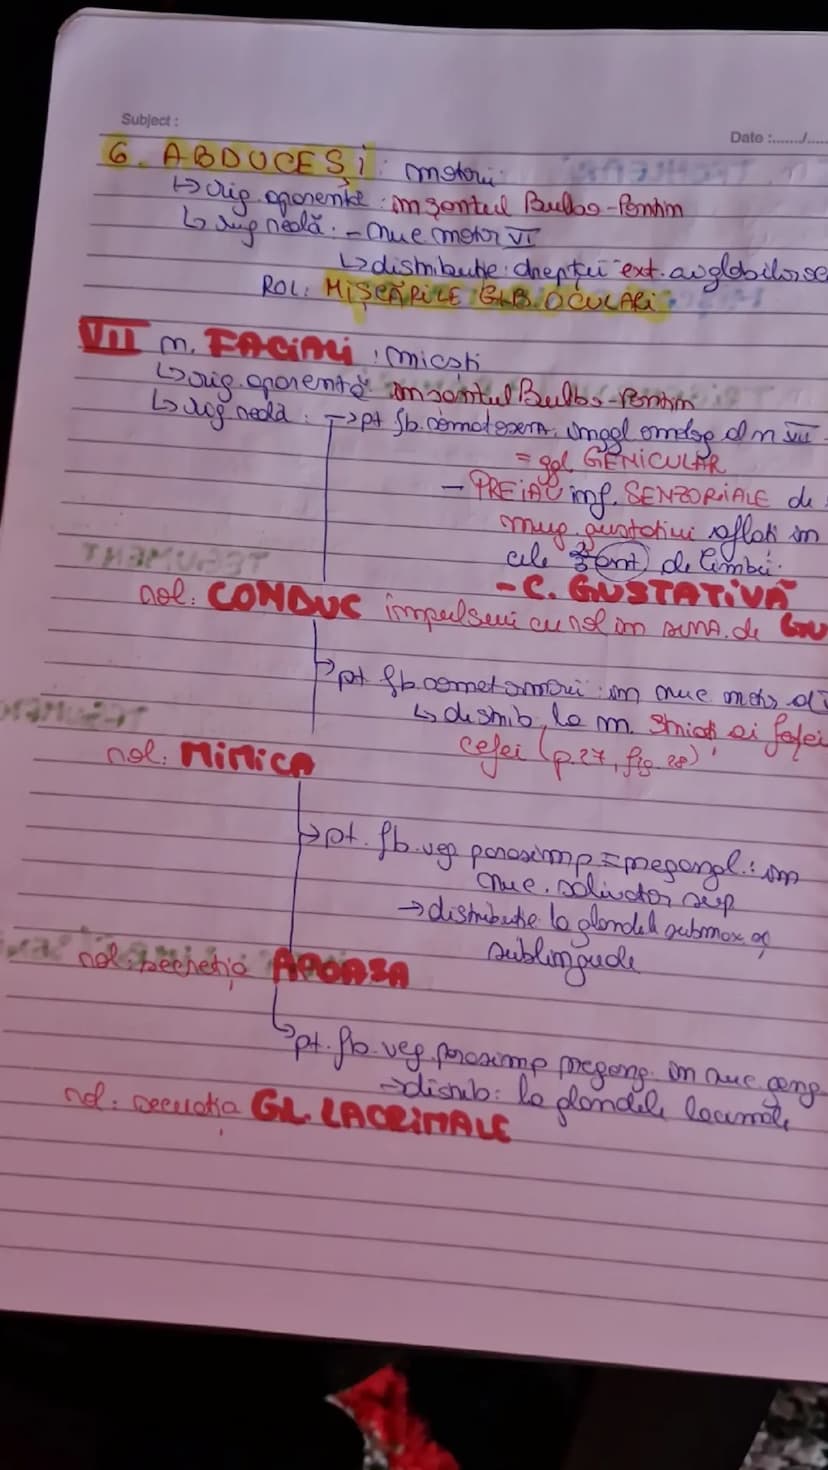 Subject :
Date :....../....
6. ABDUCEȘI : motori
↳ orig. aparentă : în șanțul Bulbo-Pontin
↳ orig reală. - nuc motor VI
↳ distribuție : drepții ext. ai globilor
ROL: MIȘCĂRILE GLB. OCULARI
VII n. FACIALI : micști
↳ orig. aparentă în șanțul Bulbo-Pontin
↳ orig reală : → pt fb. în ggl d n VII
= ggl GENICULAR
- PREIAU inf. SENZORIALE de
mug. gustativi aflați în
cele 2/3 ant de limbă.
- C. GUSTATIVĂ
rol: CONDUC impulsuri cu rol în de
↳ pt fb. somatomotorii in nuc
↳ distrib. la m. striați ai feței
cefei (p.27, fig. 28)
rol: MIMICA
↳ pt. fb. veg parasimp = pregangl. : în
nuc. salivator sup
→ distribuție la glandele submax și
sublinguale
rol: secreția APOASĂ
↳ pt. fb. veg. parasimp pregang. în nuc
→ distrib: la glandele lacrimale
rol: secreția GL. LACRIMALE